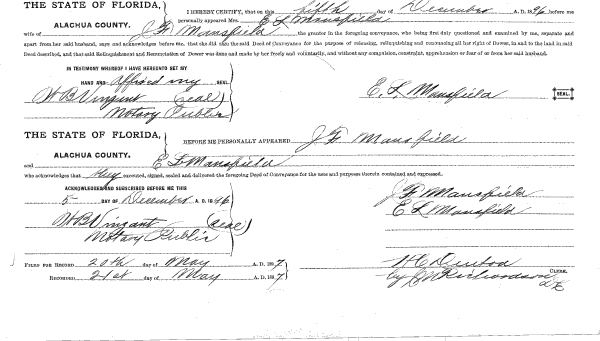 THE STATE OF FLORIDA,
ALACHUA COUNTY.
I HEREBY CERTIFY, that on this fifth day of December A. D. 1896 before me
personally appeared Mrs. E L Mansfield
wife of J F Mansfield the grantor in the foregoing conveyance, who being first duly questioned and examined by me, separate and
apart from her said husband, says and acknowledges before me, that she did sign the said Deed of Conveyance for the purpose of releasing, relinquishing and renouncing all her right of dower, in and to the land in said
Deed described, and that said Relinquishment and Renunciation of Dower was done and made by her freely and voluntarily, and without any compulsion, constraint, apprehension or fear of or from her said husband.
IN TESTIMONY WHEREOF I HAVE HEREUNTO SET MY
HAND AND Affixed my SEAL
W B Vinzant (seal)
Notary Public
E. L. Mansfield SEAL.
THE STATE OF FLORIDA,
ALACHUA COUNTY.
BEFORE ME PERSONALLY APPEARED J F Mansfield
and E L Mansfield
who acknowledges that they executed, signed, sealed and delivered the foregoing Deed of Conveyance for the uses and purposes therein contained and expressed.
ACKNOWLEDGED AND SUBSCRIBED BEFORE ME THIS
5 DAY OF December A. D. 1896
W B Vinzant (seal)
Notary Public
J F Mansfield
E L Mansfield
FILED FOR RECORD 20th day of May A. D. 1897
RECORDED 21st day of May A. D. 1897
H C Denton CLERK.
by Richardson
D C